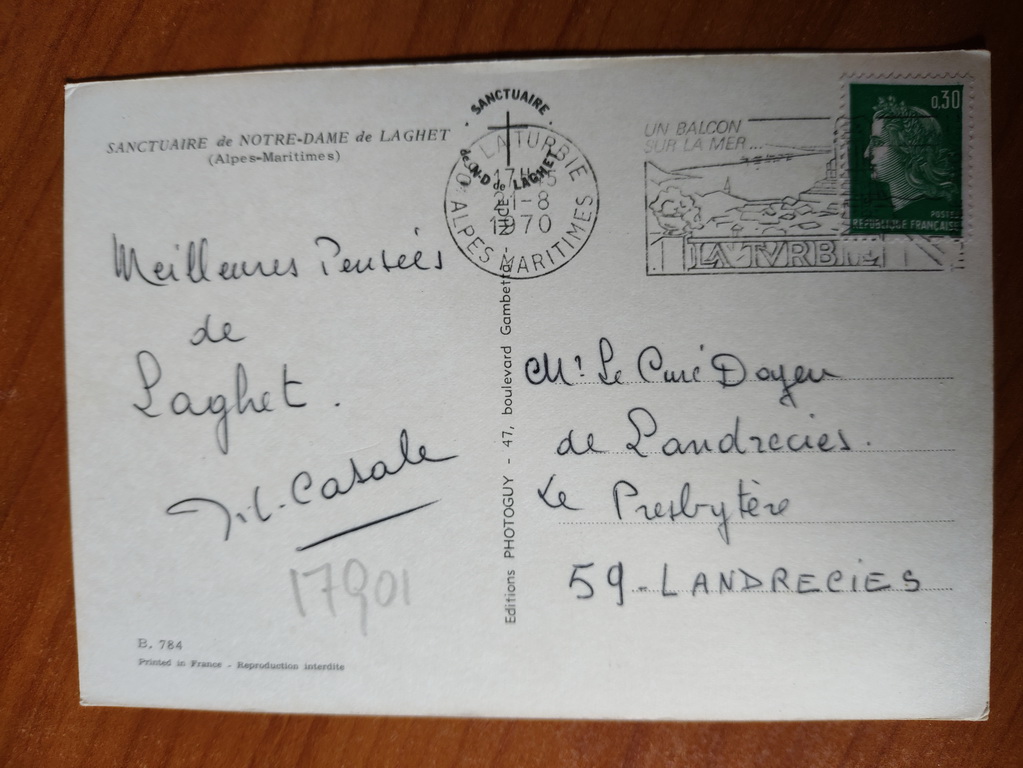 SANCTUAIRE de NOTRE-DAME de LAGHET
(Alpes-Maritimes)
Meilleures Pensées
de
Laghet.
Casale
17901
B. 784
Printed in France - Reproduction interdite
SANCTUAIRE
de N-D de LAGHET
LA TURBIE
1-8
1970
ALPES MARITIMES
Editions PHOTOGUY - 47, boulevard Gambetta - NICE
UN BALCON
SUR LA MER...
LA TVRBIE
0,30
POSTES
REPUBLIQUE FRANCAISE
Mr Le Curé Doyen
de Landrecies.
Le Presbytère
59-LANDRECIES